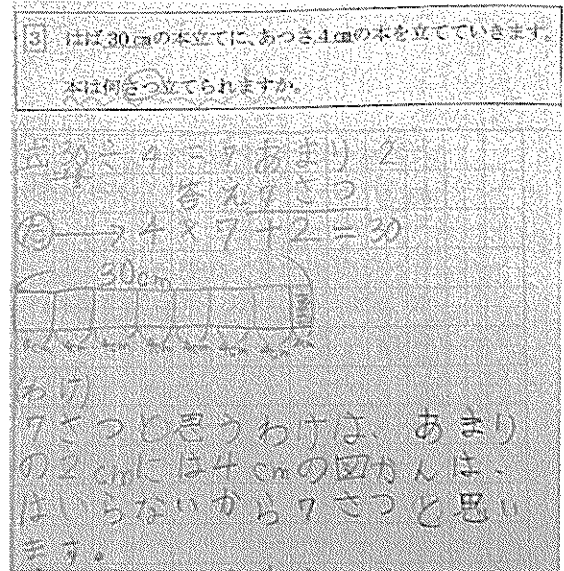 3 はば30cmの本立てに、あつさ4cmの本を立てていきます。
本は何さつ立てられますか。
30÷4=7あまり2
答え7さつ
4×7+2=30
30cm
わけ
7さつと思うわけは、あまり
の2cmには4cmの図かんは、
はいらないから7さつと思い
ます。